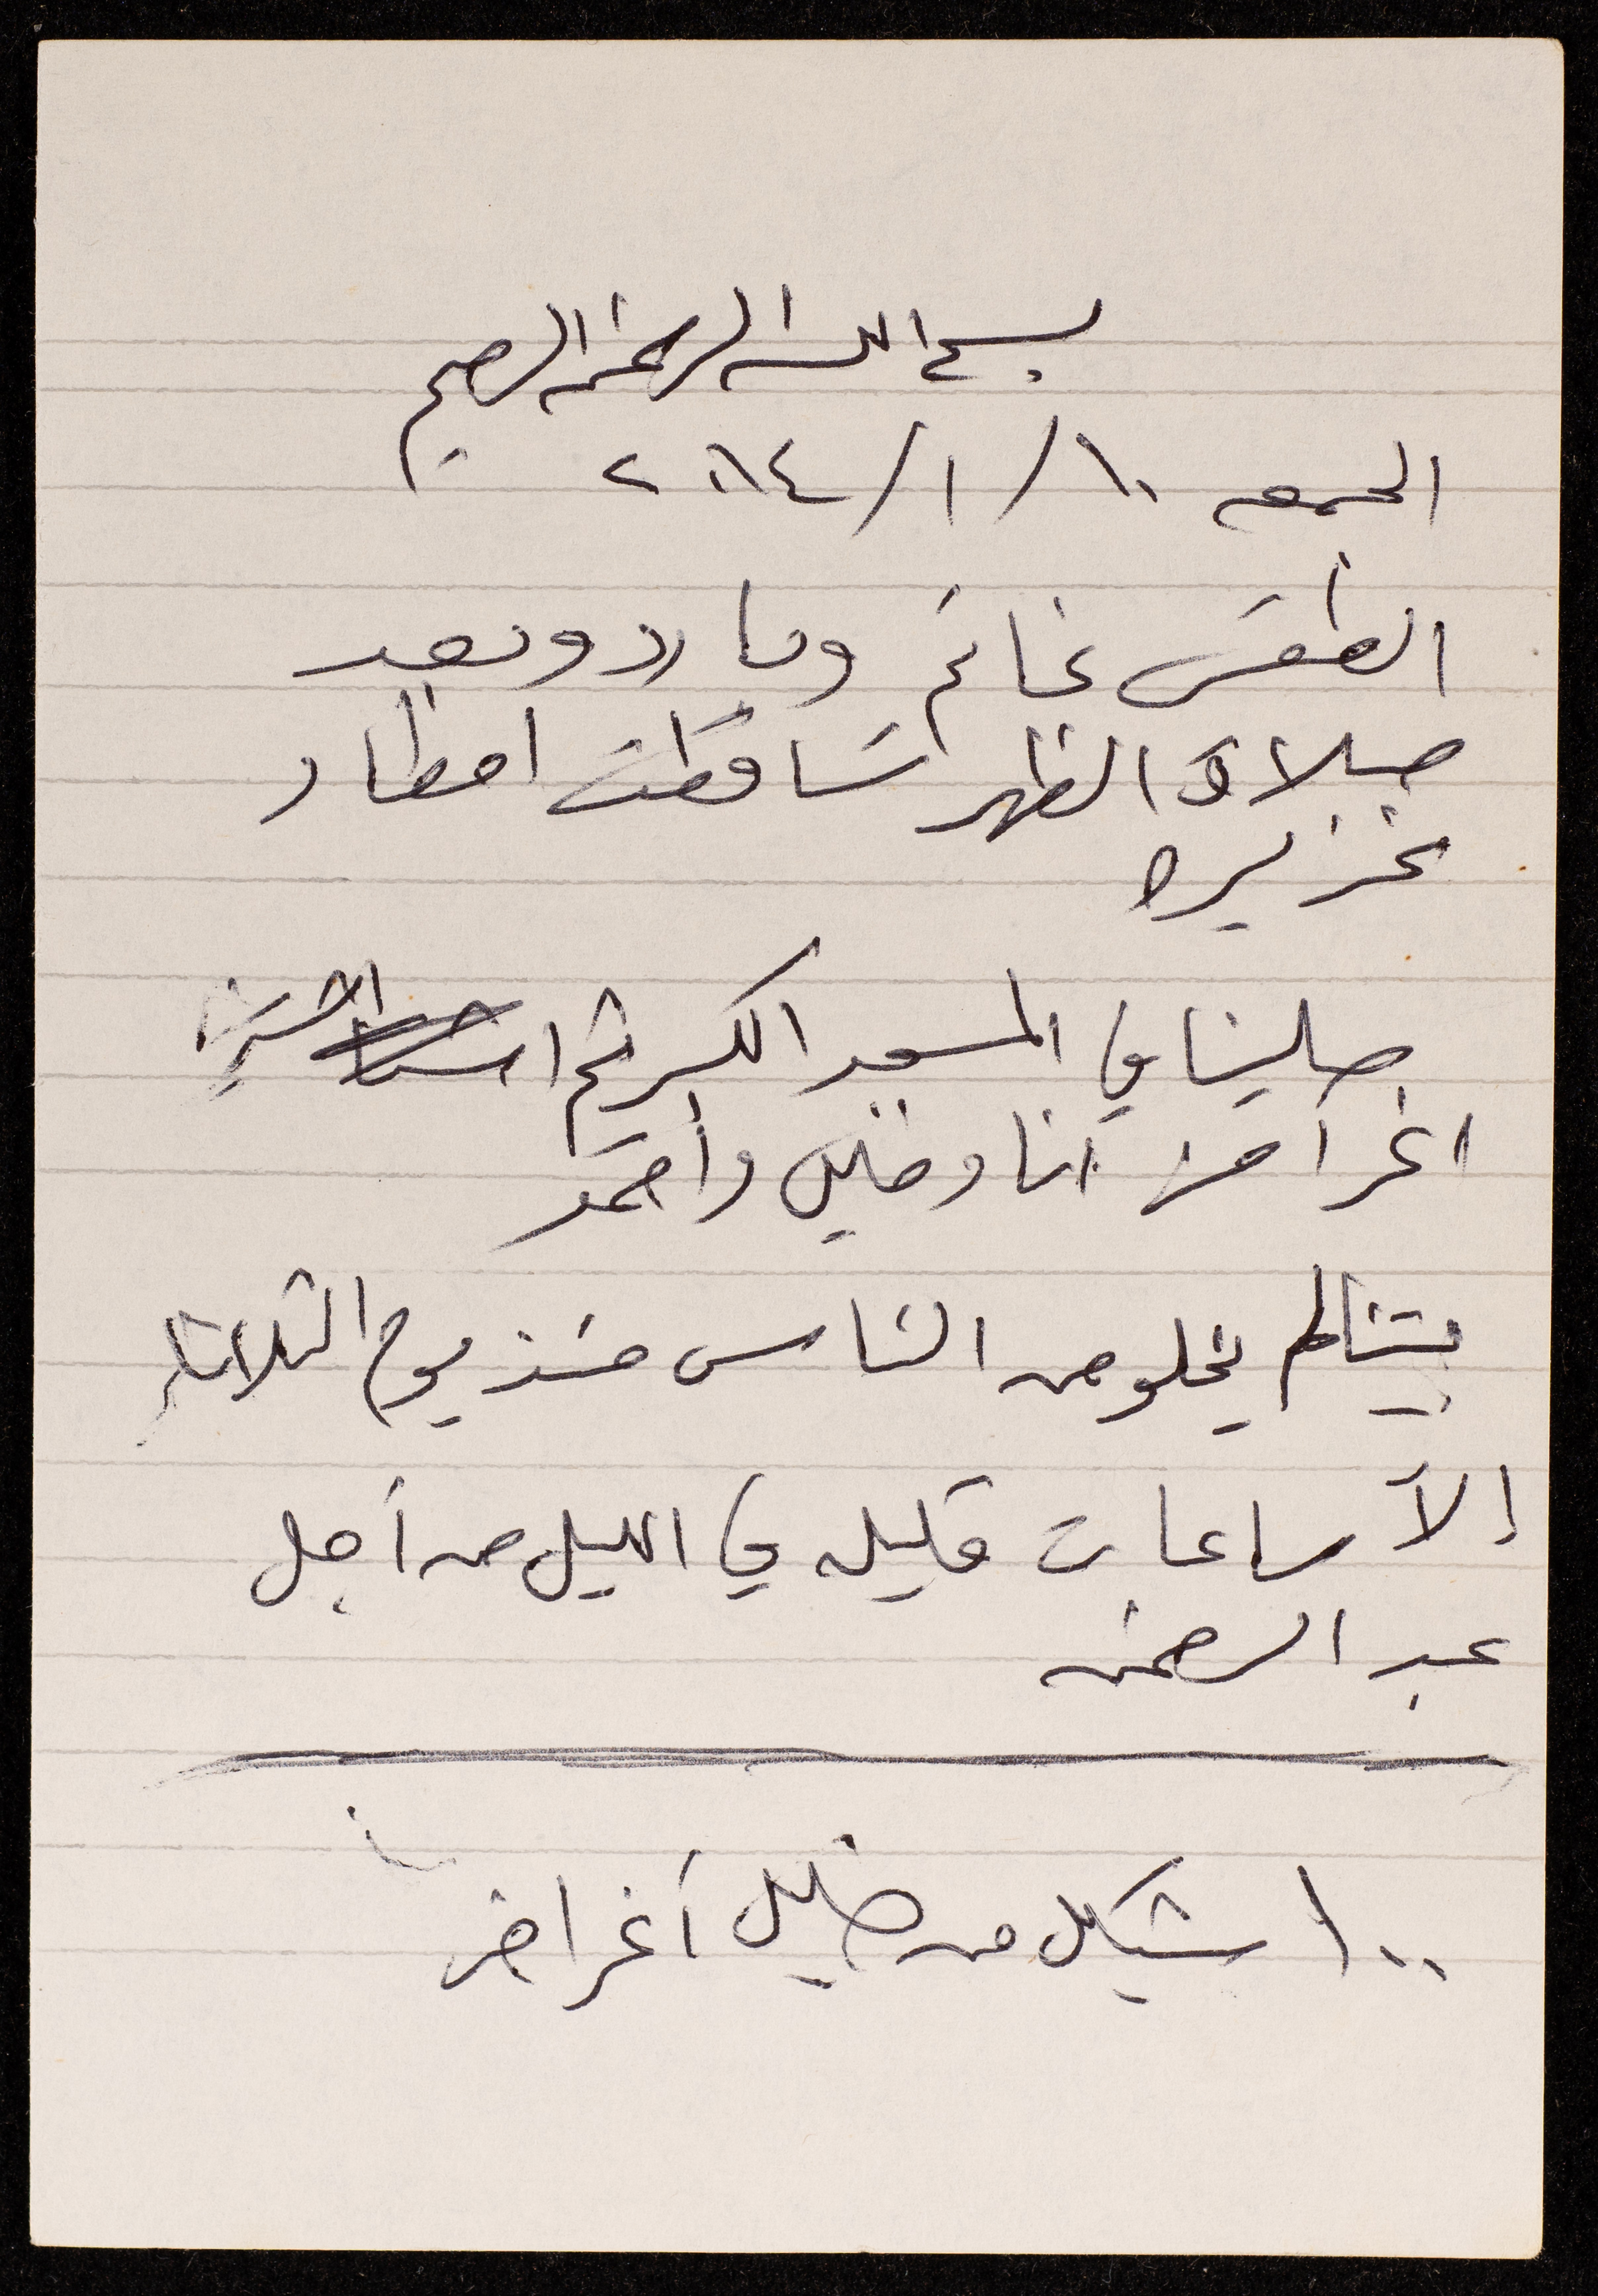 بسم الله الرحمن الرحيم
الجمعه ١٠/ ١/ ٢٠١٤
الطقس غائم وبارد وبعد
صلاة الظهر تساقطت امطار
غزيره
صلينا في المسجد الكبير ثم اشترينا
اغراض انا وخليل وأحمد
بيتنا لم يخلو من الناس منذ يوم الثلاثاء
إلآ ساعات قليله في الليل من أجل
عبد الرحمن
١٠٠ شيكل من خليل أغراض